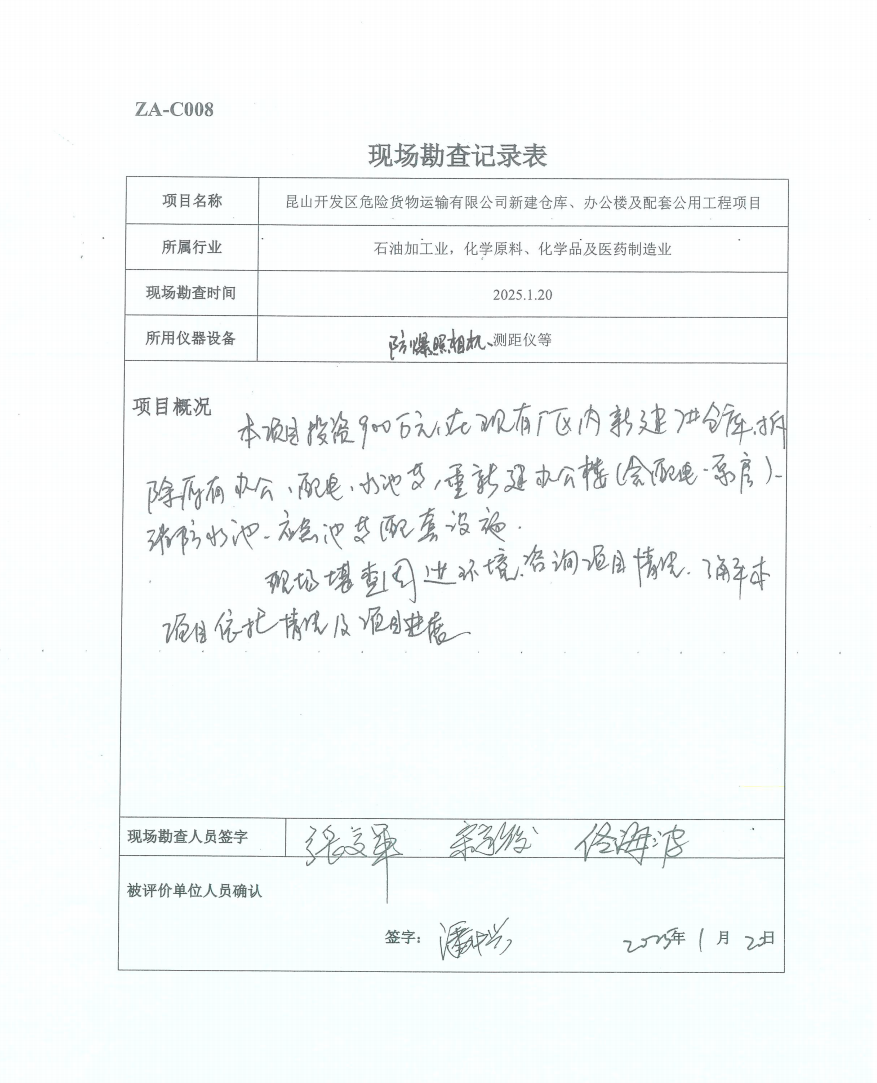 ZA-C008
现场勘查记录表
项目名称 昆山开发区危险货物运输有限公司新建仓库、办公楼及配套公用工程项目
所属行业 石油加工业，化学原料、化学品及医药制造业
现场勘查时间 2025.1.20
所用仪器设备 防爆照相机、测距仪等
项目概况
本项目投资900万元，在现有厂区内新建仓库，拆
除原有办公、配电、水池等，重新建办公楼（含配电、泵房）、
消防水池、应急池等配套设施.
现场堪查周边环境.咨询项目情况.了解本
项目依托情况及项目进展
现场勘查人员签字 张文军
被评价单位人员确认
签字： 潘中兴 2025年1月20日